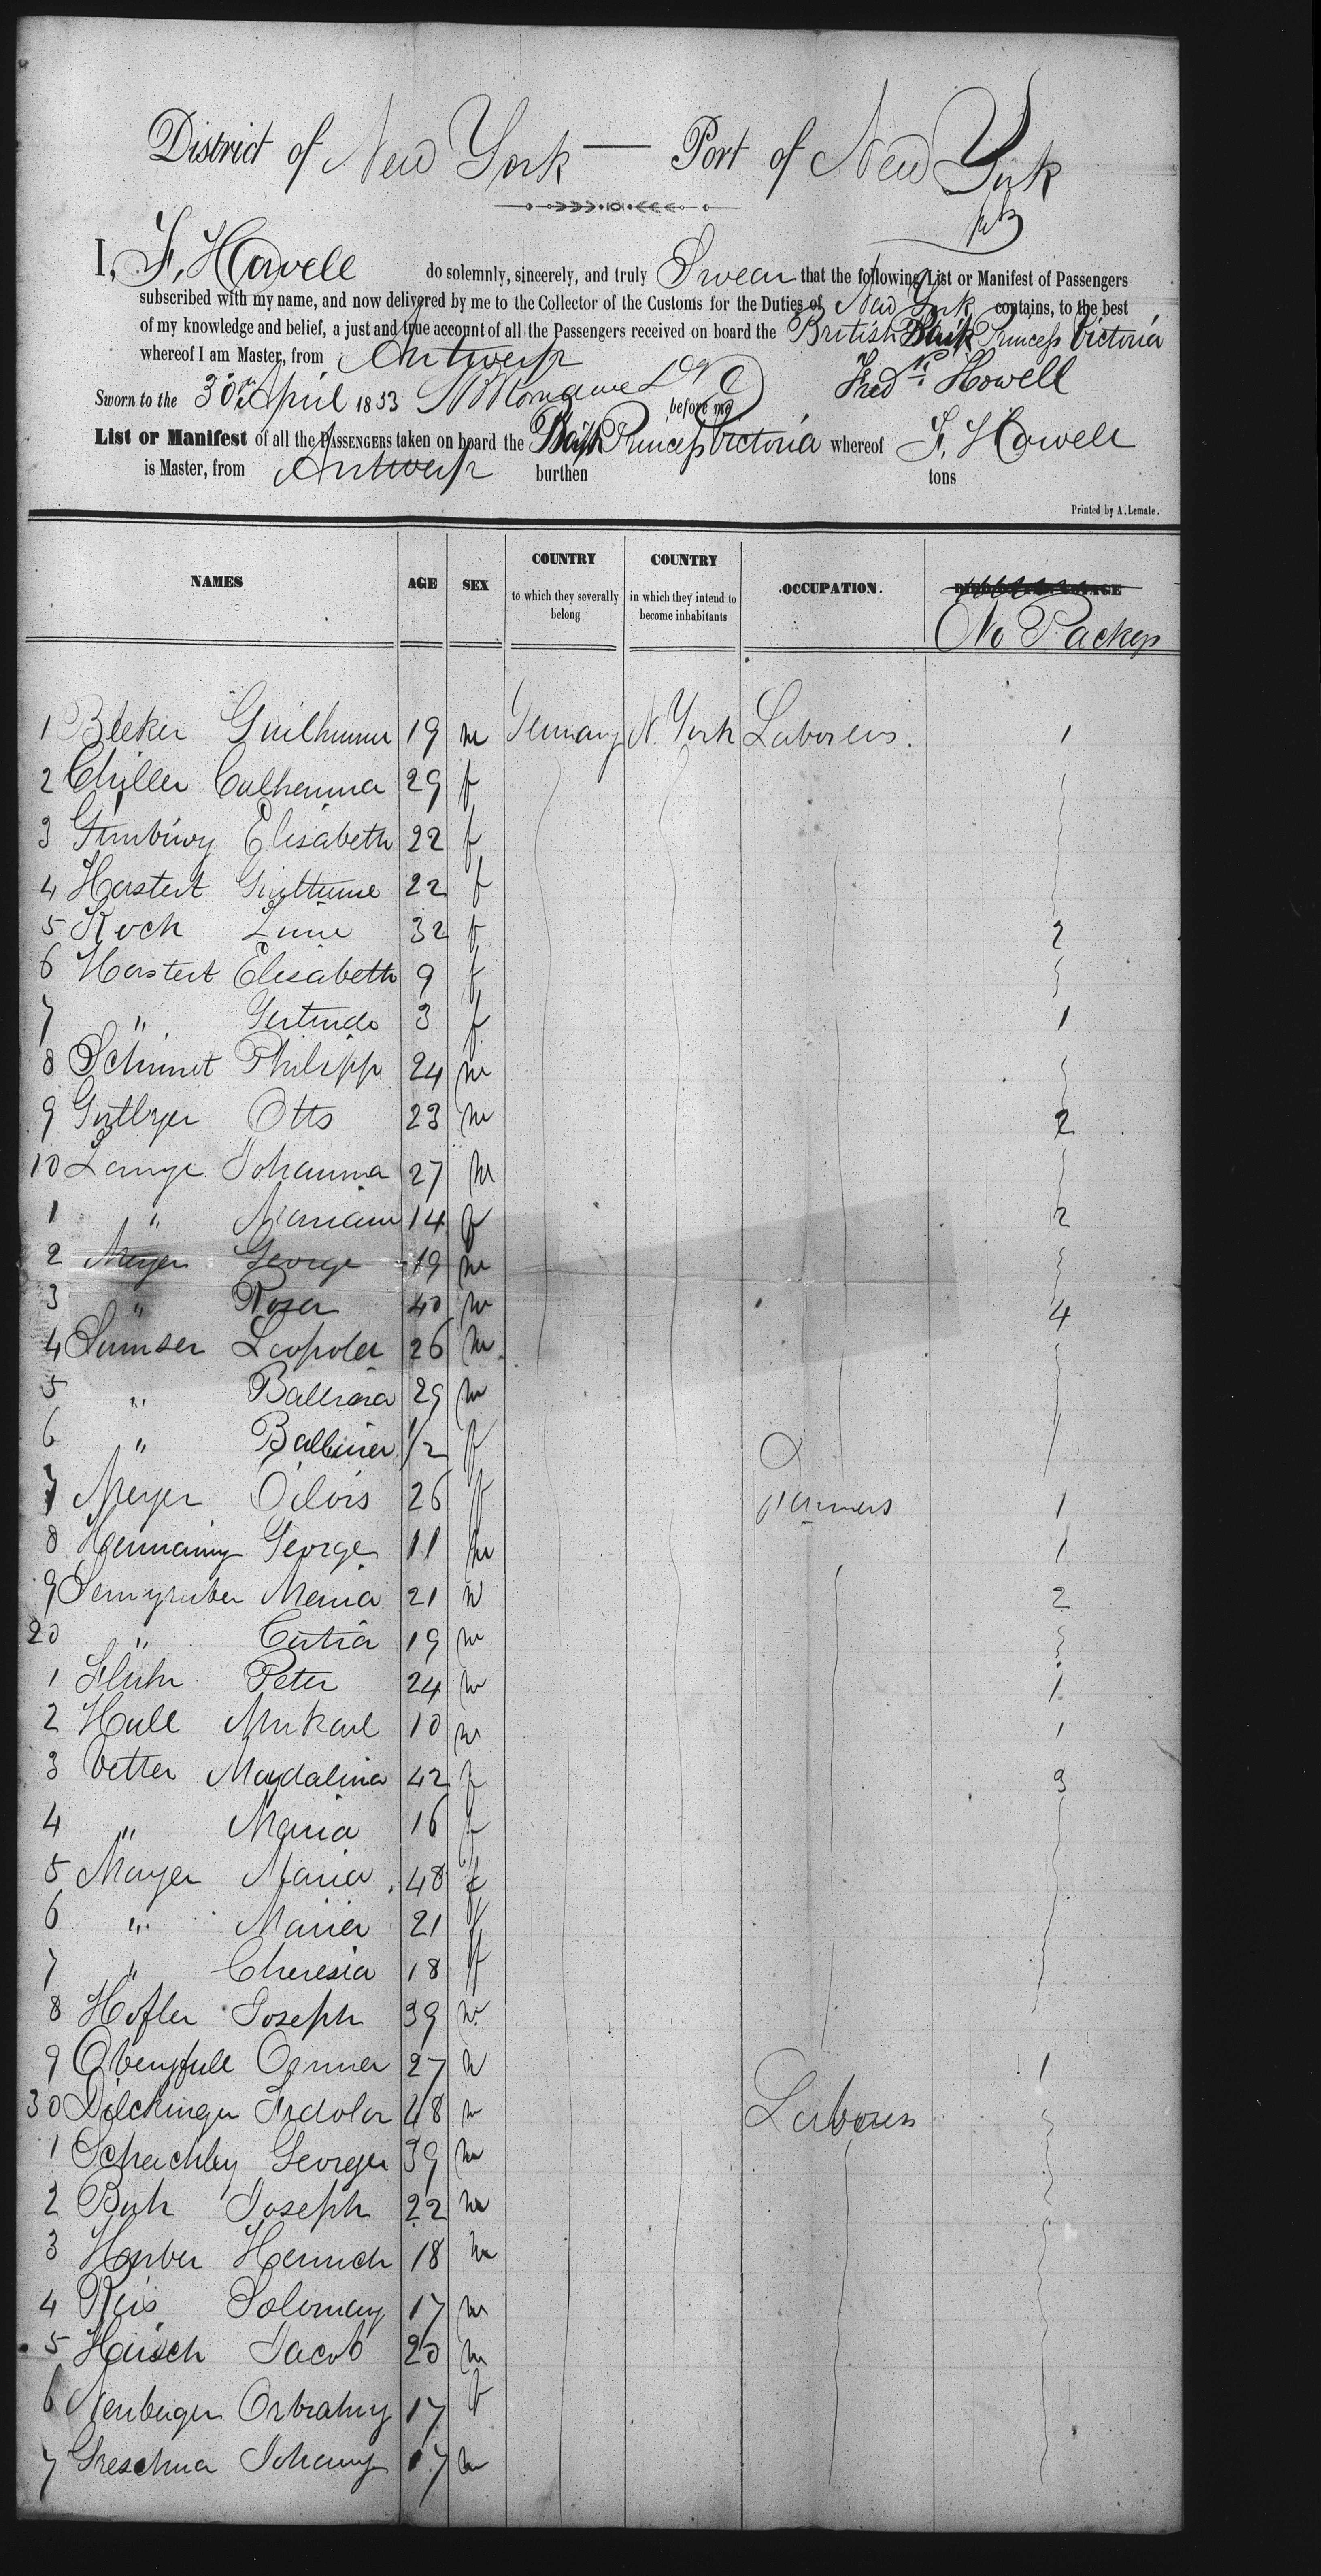 District of New York — Port of New York
I, F. Howell do solemnly, sincerely, and truly Swear that the following List or Manifest of Passengers
subscribed with my name, and now delivered by me to the Collector of the Customs for the Duties of New York contains, to the best
of my knowledge and belief, a just and true account of all the Passengers received on board the British Bark Princess Victoria
whereof I am Master, from Antwerp
Fred Howell
Sworn to the 30th April 1853 before me
List or Manifest of all the PASSENGERS taken on board the Bark Princess Victoria whereof F. Howell
is Master, from Antwerp burthen tons
Printed by A. Lemale.
NAMES AGE SEX COUNTRY to which they severally belong COUNTRY in which they intend to become inhabitants OCCUPATION.
No Packegs
1 Bleker 19 m Germany N. York Laborers. 1
2 Chiller Catherinna 29 f
3 Elisabeth 22 f
4 Herstert 22 f
5 Koch 32 f 2
6 Herstert Elisabeth 9 f
7 " Gertrude 3 f 1
8 Schimet Philipp 24 m
9 Otto 23 m 2
10 Lange Johanna 27 m
1 " Mariam 14 f 2
2 Meyer George 19 m
3 " Rosa 40 m 4
4 Sumser Leopold 26 m
5 " 29 m
6 " 1/2 f
7 Meyer 26 f Farmers 1
8 Hermanny George 11 m 1
9 Maria 21 m 2
20 " 19 m
1 Fluhr Peter 24 m 1
2 Hull Mickael 10 m 1
3 Vetter Magdalina 42 f 3
4 " Maria 16 f
5 Mayer Maria 48 f
6 " Maria 21 f
7 " Cheresia 18 f
8 Hofler Joseph 39 m
9 27 m 1
30 48 m Laborers
1 George 39 m
2 Joseph 22 m
3 Herber Heinrich 18 m
4 Reis Solomon 17 m
5 Hirsch Jacob 20 m
6 Neuburger 17 f
7 17 m